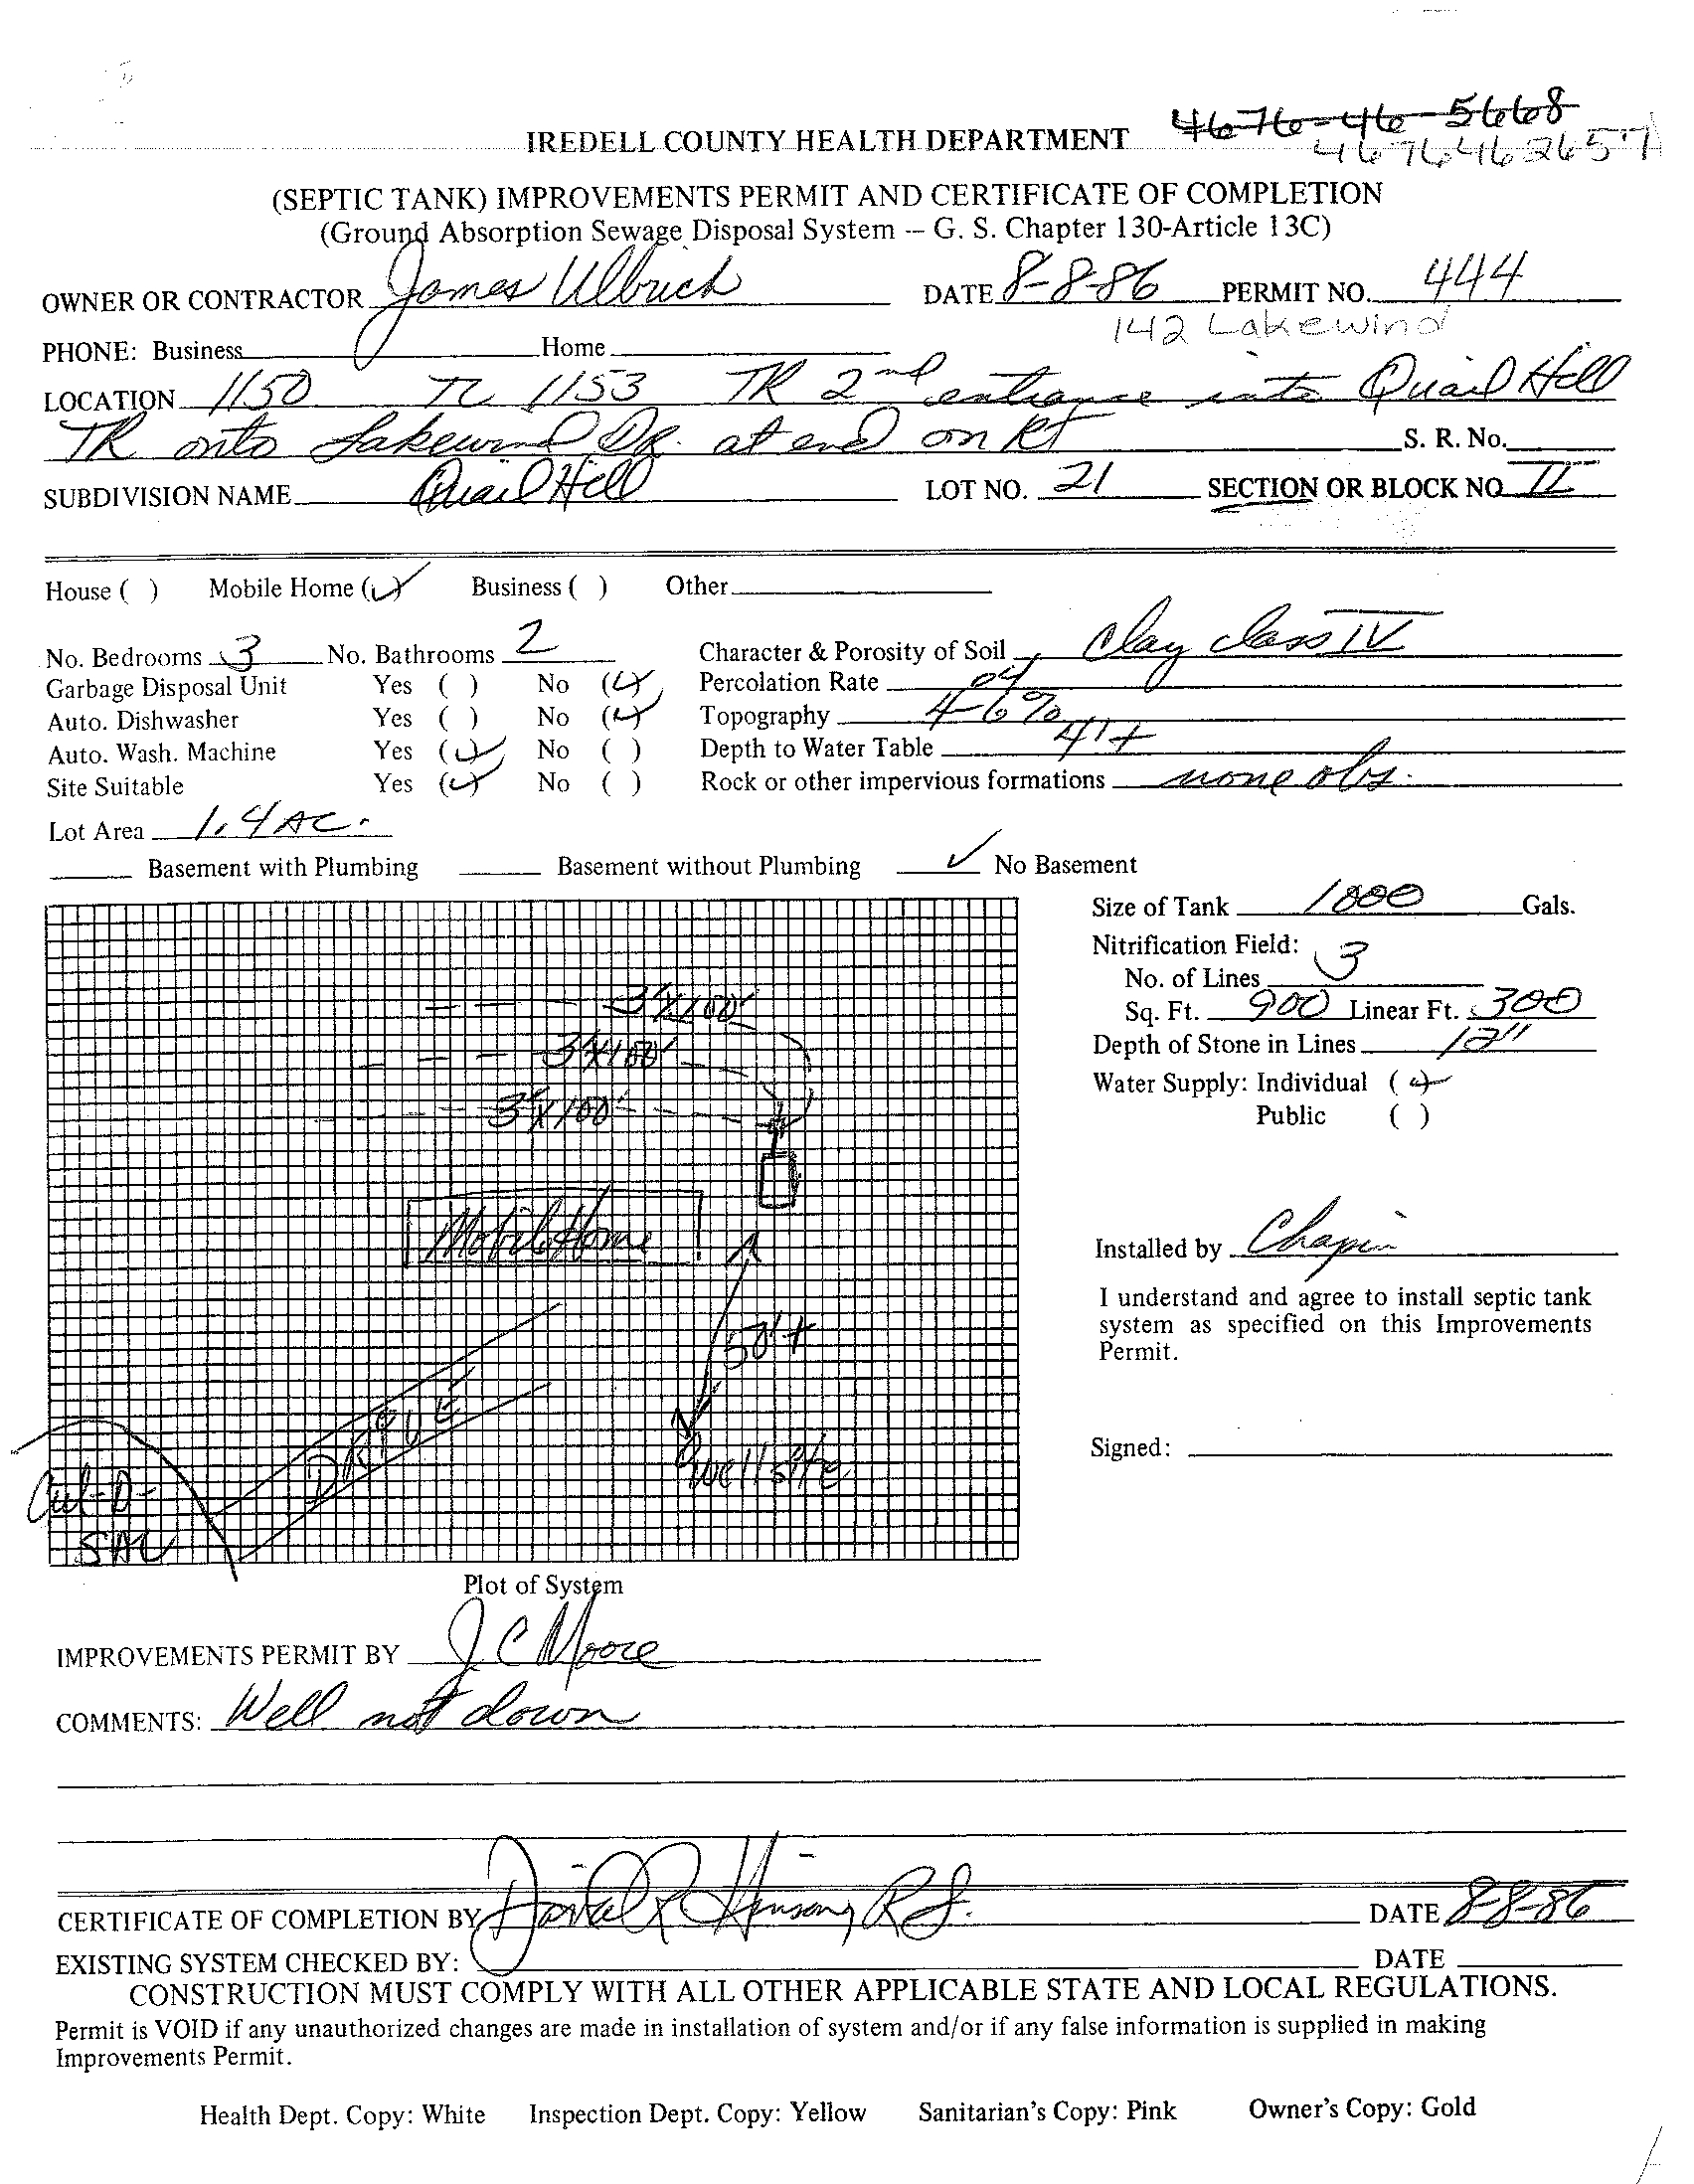 4676-46-5668
IREDELL COUNTY HEALTH DEPARTMENT
4676462657
(SEPTIC TANK) IMPROVEMENTS PERMIT AND CERTIFICATE OF COMPLETION
(Ground Absorption Sewage Disposal System -- G. S. Chapter 130-Article 13C)
OWNER OR CONTRACTOR James Ulbrich DATE 8-8-86 PERMIT NO. 444
142 Lakewind
PHONE: Business Home
LOCATION 1150 TL 1153 TR 2nd entrance into Quail Hill
TR onto Lakewind DR. at end on Rt S. R. No.
SUBDIVISION NAME Quail Hill LOT NO. 21 SECTION OR BLOCK NO. II
House ( ) Mobile Home (✓) Business ( ) Other
No. Bedrooms 3 No. Bathrooms 2 Character & Porosity of Soil Clay class IV
Garbage Disposal Unit Yes ( ) No (✓) Percolation Rate
Auto. Dishwasher Yes ( ) No (✓) Topography 4-6%
Auto. Wash. Machine Yes (✓) No ( ) Depth to Water Table 4'+
Site Suitable Yes (✓) No ( ) Rock or other impervious formations none obs.
Lot Area 1.4 AC.
Basement with Plumbing Basement without Plumbing ✓ No Basement
Size of Tank 1000 Gals.
Nitrification Field:
No. of Lines 3
Sq. Ft. 900 Linear Ft. 300
Depth of Stone in Lines 12"
Water Supply: Individual (✓)
Public ( )
3'X100'
3'X100'
3'X100'
Mobile Home
50'+
DRIVE
Well site
Cul-D-
SAC
Installed by Chapin
I understand and agree to install septic tank
system as specified on this Improvements
Permit.
Signed:
Plot of System
IMPROVEMENTS PERMIT BY J C Moore
COMMENTS: Well not down
CERTIFICATE OF COMPLETION BY R Hinson, R.S. DATE 8-8-86
EXISTING SYSTEM CHECKED BY: DATE
CONSTRUCTION MUST COMPLY WITH ALL OTHER APPLICABLE STATE AND LOCAL REGULATIONS.
Permit is VOID if any unauthorized changes are made in installation of system and/or if any false information is supplied in making
Improvements Permit.
Health Dept. Copy: White Inspection Dept. Copy: Yellow Sanitarian's Copy: Pink Owner's Copy: Gold